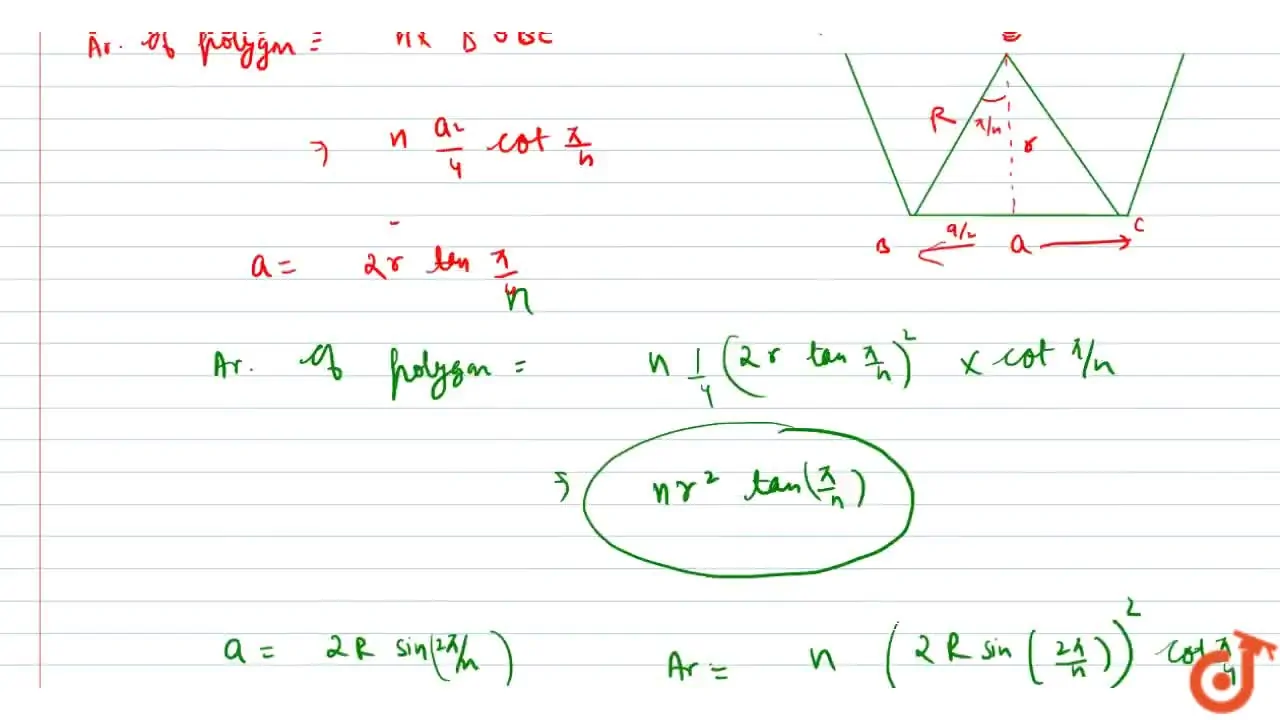 Ar. of polygon = n x Δ OBC
⇒ n a²/4 cot π/n
a = 2r tan π/n
Ar. of polygon = n 1/4 (2r tan π/n)² x cot π/n
⇒ nr² tan(π/n)
a = 2R sin(2π/n)
Ar = n (2R sin(2π/n))² cot π/4
R π/n r
B a/2 a C